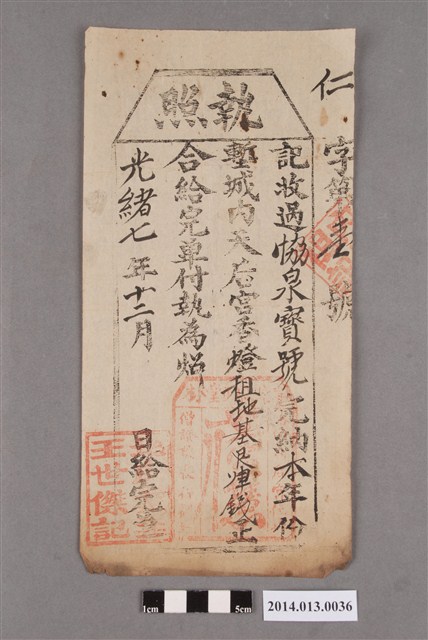 執照
仁字第壹號
記收過協泉寶號完納本年份
塹城內天后宮香燈租地基銀庫錢正
合給完單付執為炤
光緒七年十二月 日給完單
王世傑記
1cm 5cm
2014.013.0036